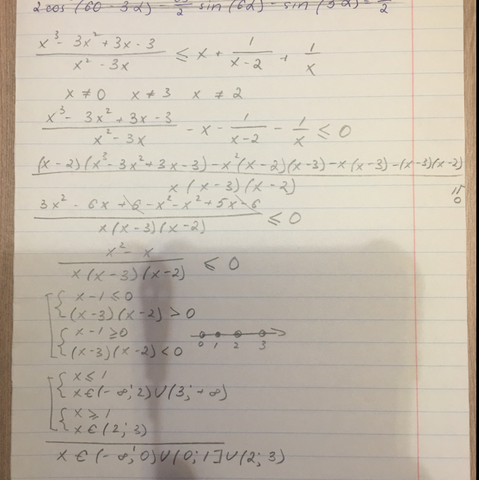 2cos(60-3α) - /2 sin(6α) - sin(3α) = /2
(x³ - 3x² + 3x - 3)/(x² - 3x) ≤ x + 1/(x-2) + 1/x
x ≠ 0 x ≠ 3 x ≠ 2
(x³ - 3x² + 3x - 3)/(x² - 3x) - x - 1/(x-2) - 1/x ≤ 0
((x-2)(x³-3x²+3x-3)-x²(x-2)(x-3)-x(x-3)-(x-3)(x-2))/(x(x-3)(x-2)) ≤ 0
(3x² - 6x + 6 - x² - x² + 5x - 6)/(x(x-3)(x-2)) ≤ 0
(x² - x)/(x(x-3)(x-2)) ≤ 0
[{ x-1 ≤ 0
{ (x-3)(x-2) > 0
{ x-1 ≥ 0
{ (x-3)(x-2) < 0
0 1 2 3
[{ x ≤ 1
{ x ∈ (-∞; 2) ∪ (3; +∞)
{ x ≥ 1
{ x ∈ (2; 3)
x ∈ (-∞; 0) ∪ (0; 1] ∪ (2; 3)